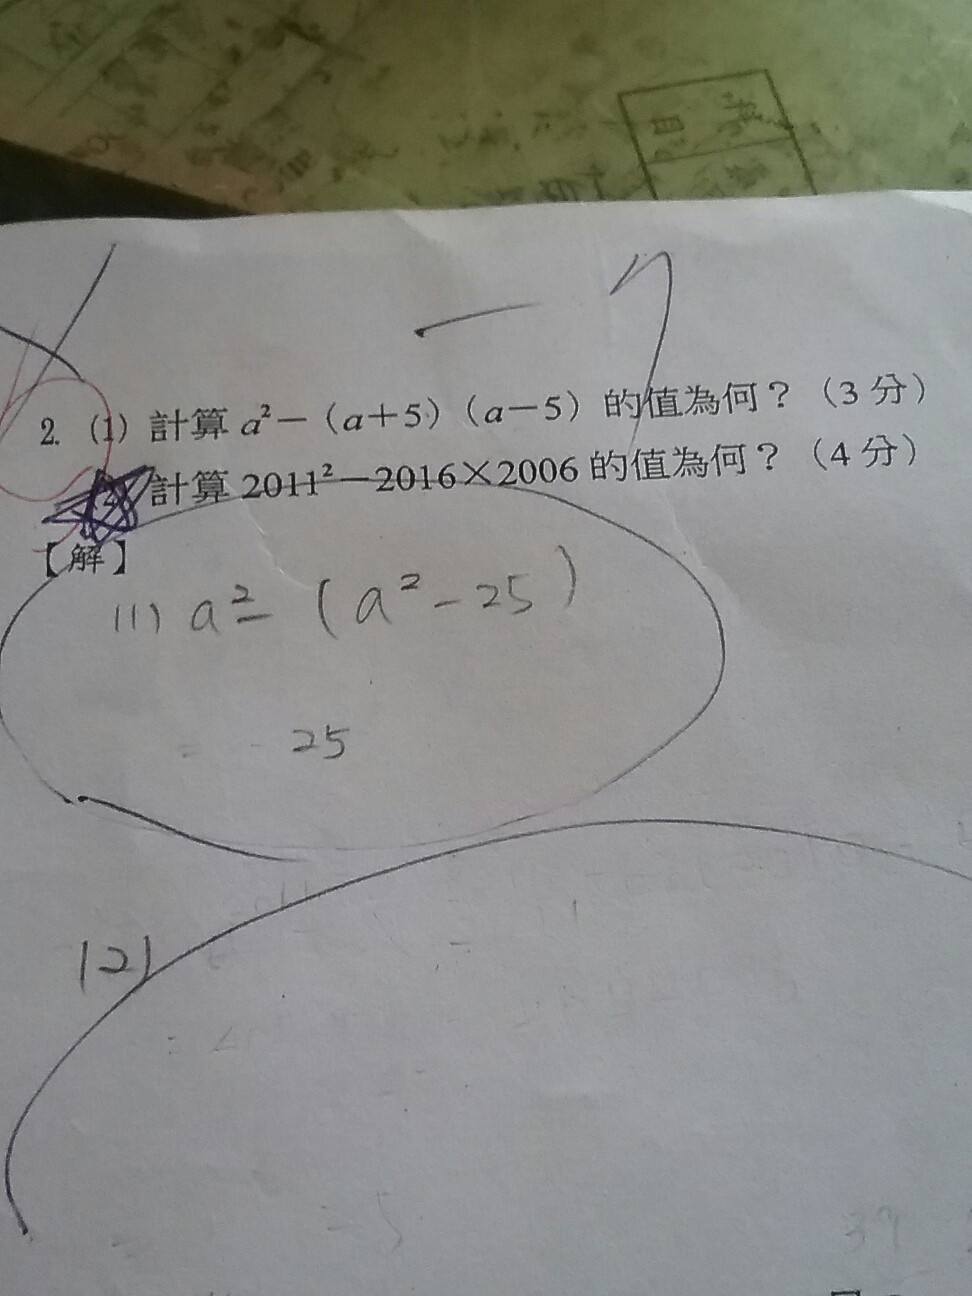 -7
2. (1) 計算 a²－（a＋5）（a－5）的值為何？（3 分）
(2) 計算 2011²－2016×2006 的值為何？（4 分）
【解】
(1) a² - (a² - 25)
= 25
(2)